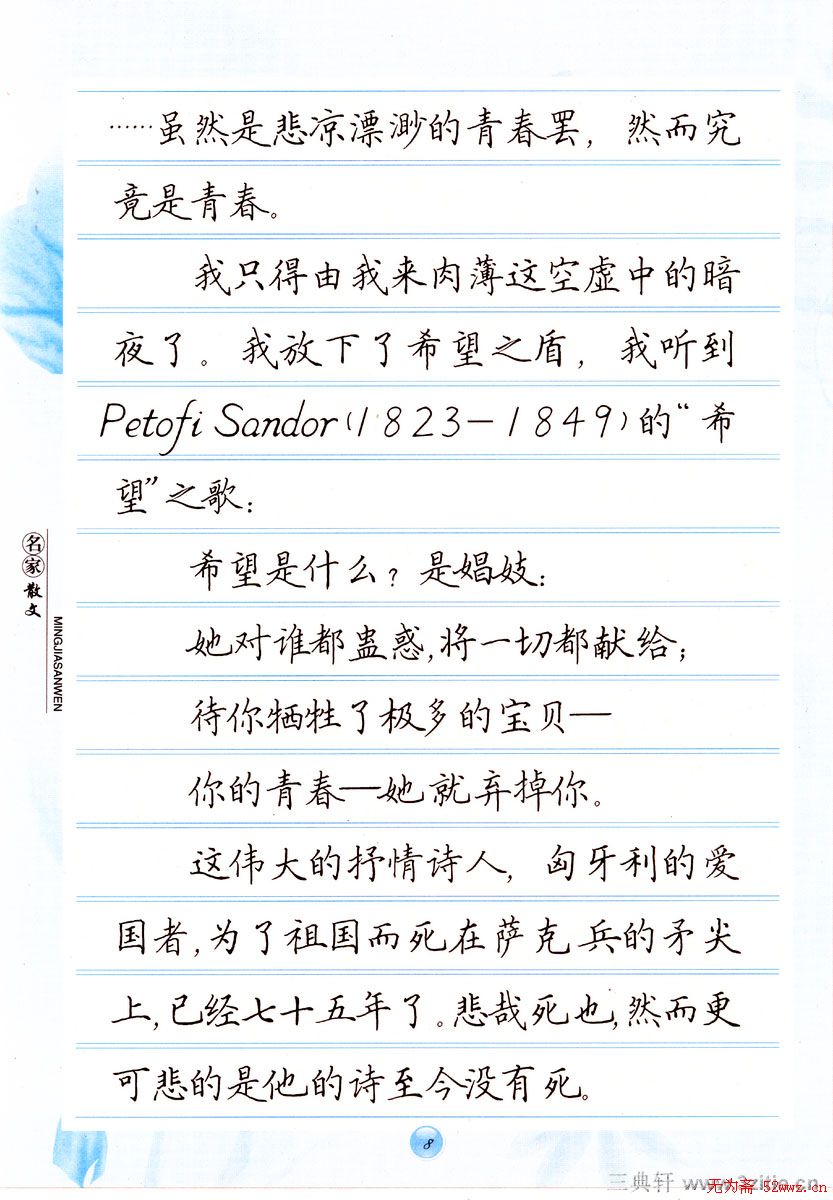 ……虽然是悲凉漂渺的青春罢，然而究
竟是青春。
我只得由我来肉薄这空虚中的暗
夜了。我放下了希望之盾，我听到
Petofi Sandor(1823—1849)的“希
望”之歌：
希望是什么？是娼妓：
她对谁都蛊惑,将一切都献给；
待你牺牲了极多的宝贝—
你的青春—她就弃掉你。
这伟大的抒情诗人，匈牙利的爱
国者,为了祖国而死在萨克兵的矛尖
上,已经七十五年了。悲哉死也,然而更
可悲的是他的诗至今没有死。
名家散文
MINGJIASANWEN
8
三典轩 www.
无为斋 52wwz.cn